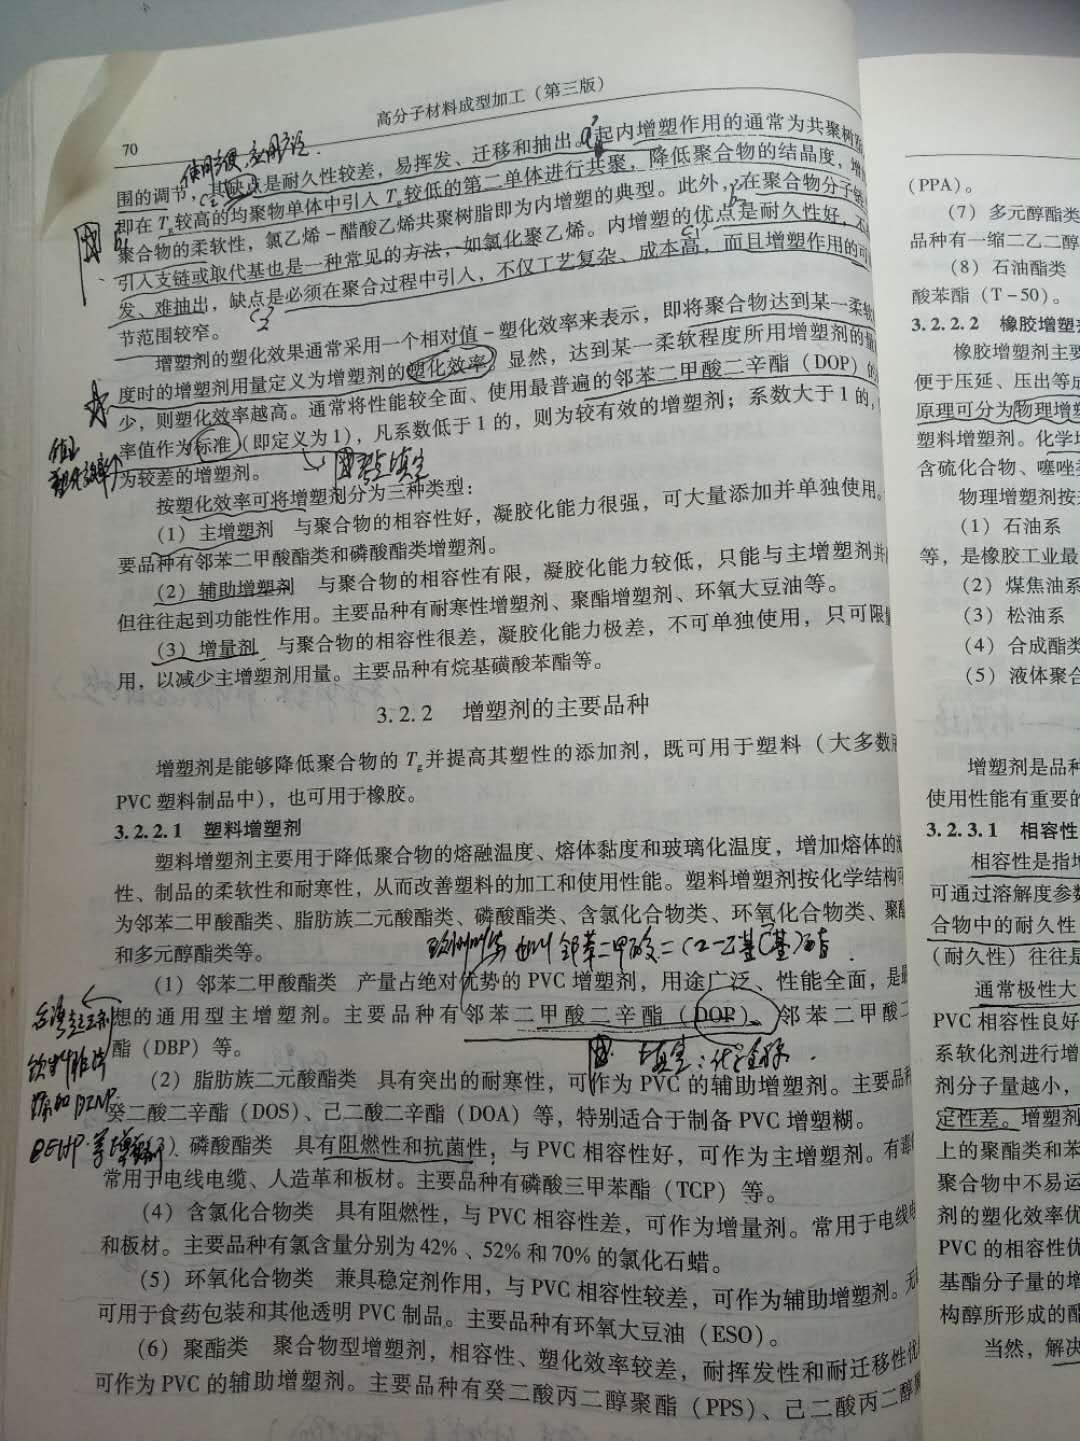 高分子材料成型加工（第三版）
70
围的调节，其缺点是耐久性较差，易挥发、迁移和抽出。起内增塑作用的通常为共聚树
即在 Tg 较高的均聚物单体中引入 Tg 较低的第二单体进行共聚，降低聚合物的结晶度，增
聚合物的柔软性，氯乙烯－醋酸乙烯共聚树脂即为内增塑的典型。此外，在聚合物分子链
引入支链或取代基也是一种常见的方法，如氯化聚乙烯。内增塑的优点是耐久性好，不
发、难抽出，缺点是必须在聚合过程中引入，不仅工艺复杂、成本高，而且增塑作用的可
节范围较窄。
增塑剂的塑化效果通常采用一个相对值－塑化效率来表示，即将聚合物达到某一柔软
度时的增塑剂用量定义为增塑剂的塑化效率。显然，达到某一柔软程度所用增塑剂的量
少，则塑化效率越高。通常将性能较全面、使用最普遍的邻苯二甲酸二辛酯（DOP）的
率值作为标准（即定义为1），凡系数低于1的，则为较有效的增塑剂；系数大于1的，
为较差的增塑剂。
填空
按塑化效率可将增塑剂分为三种类型：
（1）主增塑剂 与聚合物的相容性好，凝胶化能力很强，可大量添加并单独使用。
要品种有邻苯二甲酸酯类和磷酸酯类增塑剂。
（2）辅助增塑剂 与聚合物的相容性有限，凝胶化能力较低，只能与主增塑剂并
但往往起到功能性作用。主要品种有耐寒性增塑剂、聚酯增塑剂、环氧大豆油等。
（3）增量剂 与聚合物的相容性很差，凝胶化能力极差，不可单独使用，只可限
用，以减少主增塑剂用量。主要品种有烷基磺酸苯酯等。
3.2.2 增塑剂的主要品种
增塑剂是能够降低聚合物的 Tg 并提高其塑性的添加剂，既可用于塑料（大多数
PVC 塑料制品中），也可用于橡胶。
3.2.2.1 塑料增塑剂
塑料增塑剂主要用于降低聚合物的熔融温度、熔体黏度和玻璃化温度，增加熔体的
性、制品的柔软性和耐寒性，从而改善塑料的加工和使用性能。塑料增塑剂按化学结构可
为邻苯二甲酸酯类、脂肪族二元酸酯类、磷酸酯类、含氯化合物类、环氧化合物类、聚
和多元醇酯类等。
邻苯二甲酸二(2-乙基己基)酯
（1）邻苯二甲酸酯类 产量占绝对优势的 PVC 增塑剂，用途广泛、性能全面，是
想的通用型主增塑剂。主要品种有邻苯二甲酸二辛酯（DOP）、邻苯二甲酸二
酯（DBP）等。
填空：化学全称
（2）脂肪族二元酸酯类 具有突出的耐寒性，可作为 PVC 的辅助增塑剂。主要品
癸二酸二辛酯（DOS）、己二酸二辛酯（DOA）等，特别适合于制备 PVC 增塑糊。
）磷酸酯类 具有阻燃性和抗菌性，与 PVC 相容性好，可作为主增塑剂。有毒
常用于电线电缆、人造革和板材。主要品种有磷酸三甲苯酯（TCP）等。
（4）含氯化合物类 具有阻燃性，与 PVC 相容性差，可作为增量剂。常用于电线
和板材。主要品种有氯含量分别为42%、52%和70%的氯化石蜡。
（5）环氧化合物类 兼具稳定剂作用，与 PVC 相容性较差，可作为辅助增塑剂。无
可用于食药包装和其他透明 PVC 制品。主要品种有环氧大豆油（ESO）。
（6）聚酯类 聚合物型增塑剂，相容性、塑化效率较差，耐挥发性和耐迁移性优
可作为 PVC 的辅助增塑剂。主要品种有癸二酸丙二醇聚酯（PPS）、己二酸丙二醇
（PPA）。
（7）多元醇酯类
品种有一缩二乙二醇
（8）石油酯类
酸苯酯（T－50）。
3.2.2.2 橡胶增塑
橡胶增塑剂主要
便于压延、压出等成
原理可分为物理增塑
塑料增塑剂。化学
含硫化合物、噻唑
物理增塑剂按
（1）石油系
等，是橡胶工业最
（2）煤焦油系
（3）松油系
（4）合成酯类
（5）液体聚合
增塑剂是品种
使用性能有重要的
3.2.3.1 相容性
相容性是指增
可通过溶解度参数
合物中的耐久性
（耐久性）往往是
通常极性大
PVC 相容性良好
系软化剂进行增
剂分子量越小，
定性差。增塑剂
上的聚酯类和苯
聚合物中不易运
剂的塑化效率优
PVC 的相容性优
基酯分子量的增
构醇所形成的酯
当然，解决